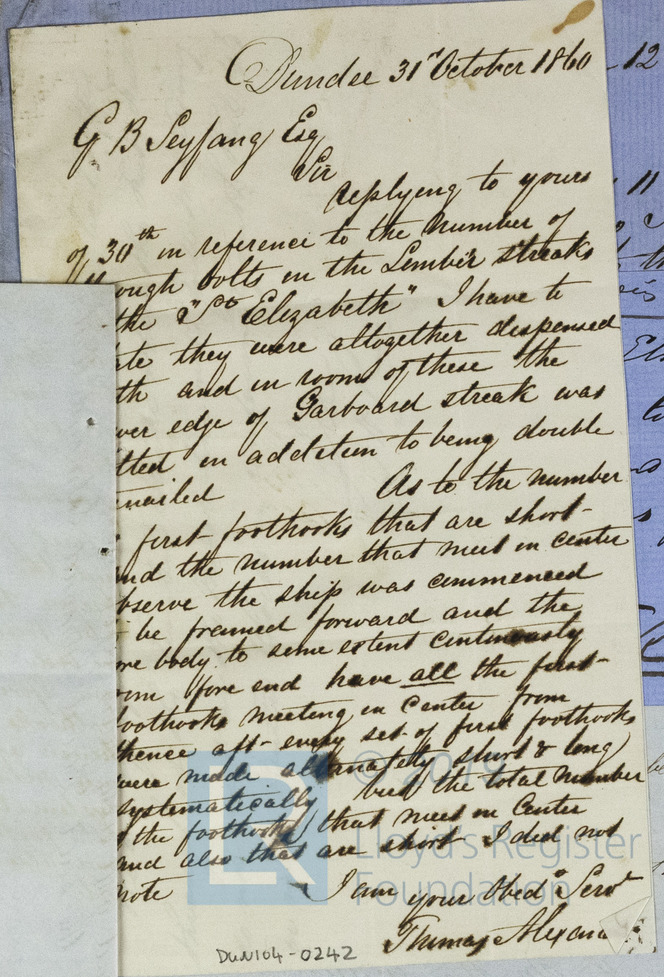 Dundee 31st October 1860
G B Seyfang Esq
Sir
Replying to yours
of 30th in reference to the number of
through bolts in the Limber streaks
the "St Elizabeth" I have to
ate they were altogether dispensed
th and in room of these the
wer edge of Garboard streak was
tted in addition to being double
nailed As to the number
first foothooks that are short
and the number that meet in center
bserve the ship was commenced
be framed forward and the
re body to some extent continuously
om fore end have all the first
foothooks meeting in center from
thence aft every set of first foothooks
were made alternately short & long
systematically but the total number
the foothooks that meet in center
and also that are short I did not
note
I am your Obedt Servt
Thomas Alexan
DUN104-0242
Lloyd's Register
Foundation